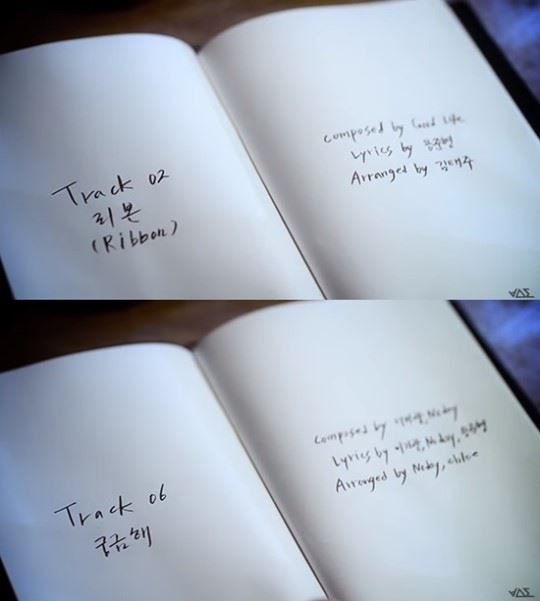 Track 02
리본
(Ribbon)
Composed by Good Life
Lyrics by 용준형
Arranged by 김태주
Track 06
궁금해
Composed by 이기광, Noday
Lyrics by 이기광, Noday, 용준형
Arranged by Noday, Chloe